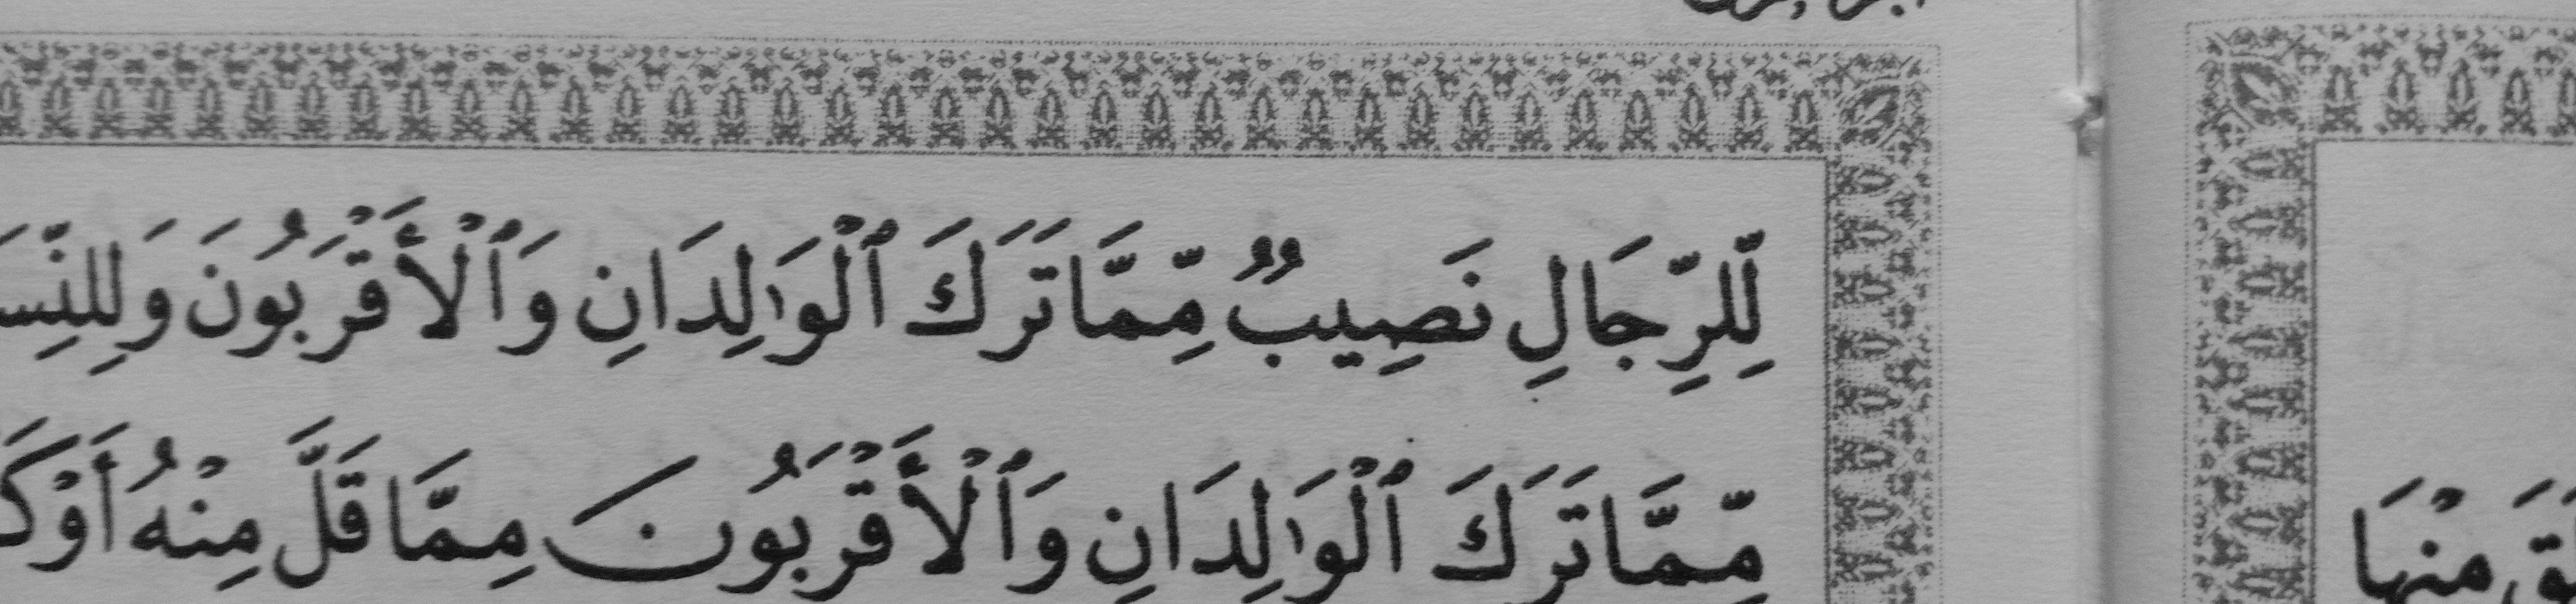 لِّلرِّجَالِ نَصِيبٌ مِّمَّا تَرَكَ ٱلْوَٰلِدَانِ وَٱلْأَقْرَبُونَ
مِّمَّا تَرَكَ ٱلْوَٰلِدَانِ وَٱلْأَقْرَبُونَ مِمَّا قَلَّ مِنْهُ أَوْ
مِنْهَا